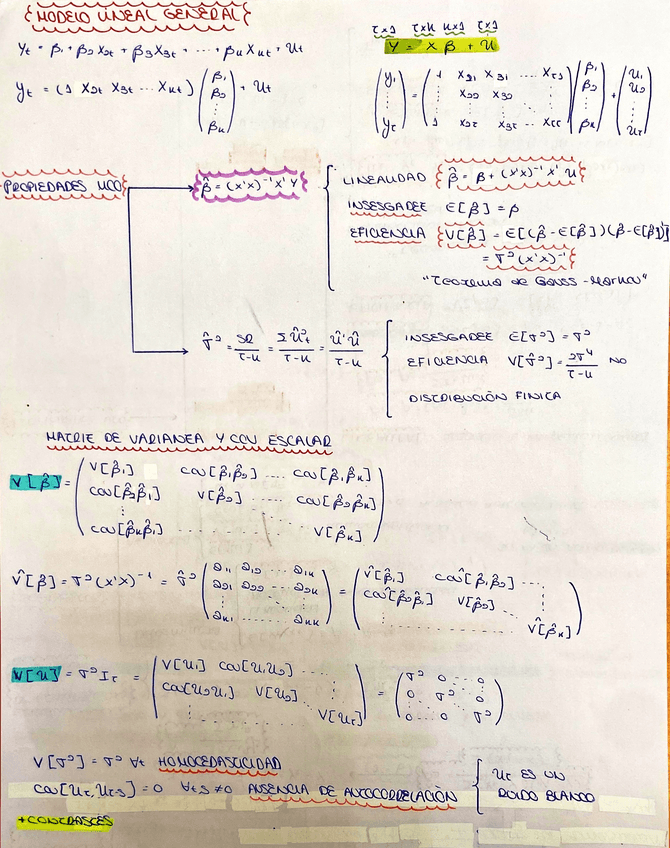 {MODELO LINEAL GENERAL}
Yt = β1 + β2 X2t + β3 X3t + ... + βk Xkt + Ut
Yt = (1 X2t X3t ... Xkt) (β1 β2 ⋮ βk) + Ut
T×1 T×K K×1 T×1
Y = X β + U
(Y1 ⋮ YT) = (1 X21 X31 ... XT1
⋮ X22 X32
1 X2T X3T ... XTT) (β1 β2 ⋮ βk) + (U1 U2 ⋮ UT)
PROPIEDADES MCO
β̂ = (X'X)⁻¹ X' Y
LINEALIDAD {β̂ = β + (X'X)⁻¹ X' U}
INSESGADEZ E[β̂] = β
EFICIENCIA {V[β̂] = E[(β̂ - E[β̂])(β̂ - E[β̂])']
= σ² (X'X)⁻¹}
"Teorema de Gauss-Markov"
σ̂² = SR/T-K = Σ Û²t/T-K = Û'Û/T-K
INSESGADEZ E[σ̂²] = σ²
EFICIENCIA V[σ̂²] = 2σ⁴/T-K NO
DISTRIBUCIÓN FINICA
MATRIZ DE VARIANZA Y COV ESCALAR
V[β̂] = (V[β̂1] cov[β̂1 β̂2] ... cov[β̂1 β̂k]
cov[β̂2 β̂1] V[β̂2] ... cov[β̂2 β̂k]
⋮
cov[β̂k β̂1] ... V[β̂k])
V̂[β̂] = σ̂² (X'X)⁻¹ = σ̂² (a11 a12 ... a1k
a21 a22 ... a2k
⋮
ak1 ... akk) = (V̂[β̂1] cov̂[β̂1 β̂2] ...
cov̂[β̂2 β̂1] V̂[β̂2] ...
... V̂[β̂k])
V[U] = σ² IT = (V[U1] cov[U1 U2] ...
cov[U2 U1] V[U2] ...
... V[UT]) = (σ² 0 ... 0
0 σ² 0
0 ... 0 σ²)
V[σ²] = σ² ∀t HOMOCEDASTICIDAD
cov[Ut, Ut-s] = 0 ∀t s ≠ 0 AUSENCIA DE AUTOCORRELACIÓN
Ut ES UN
RUIDO BLANCO
+CONTRASTES